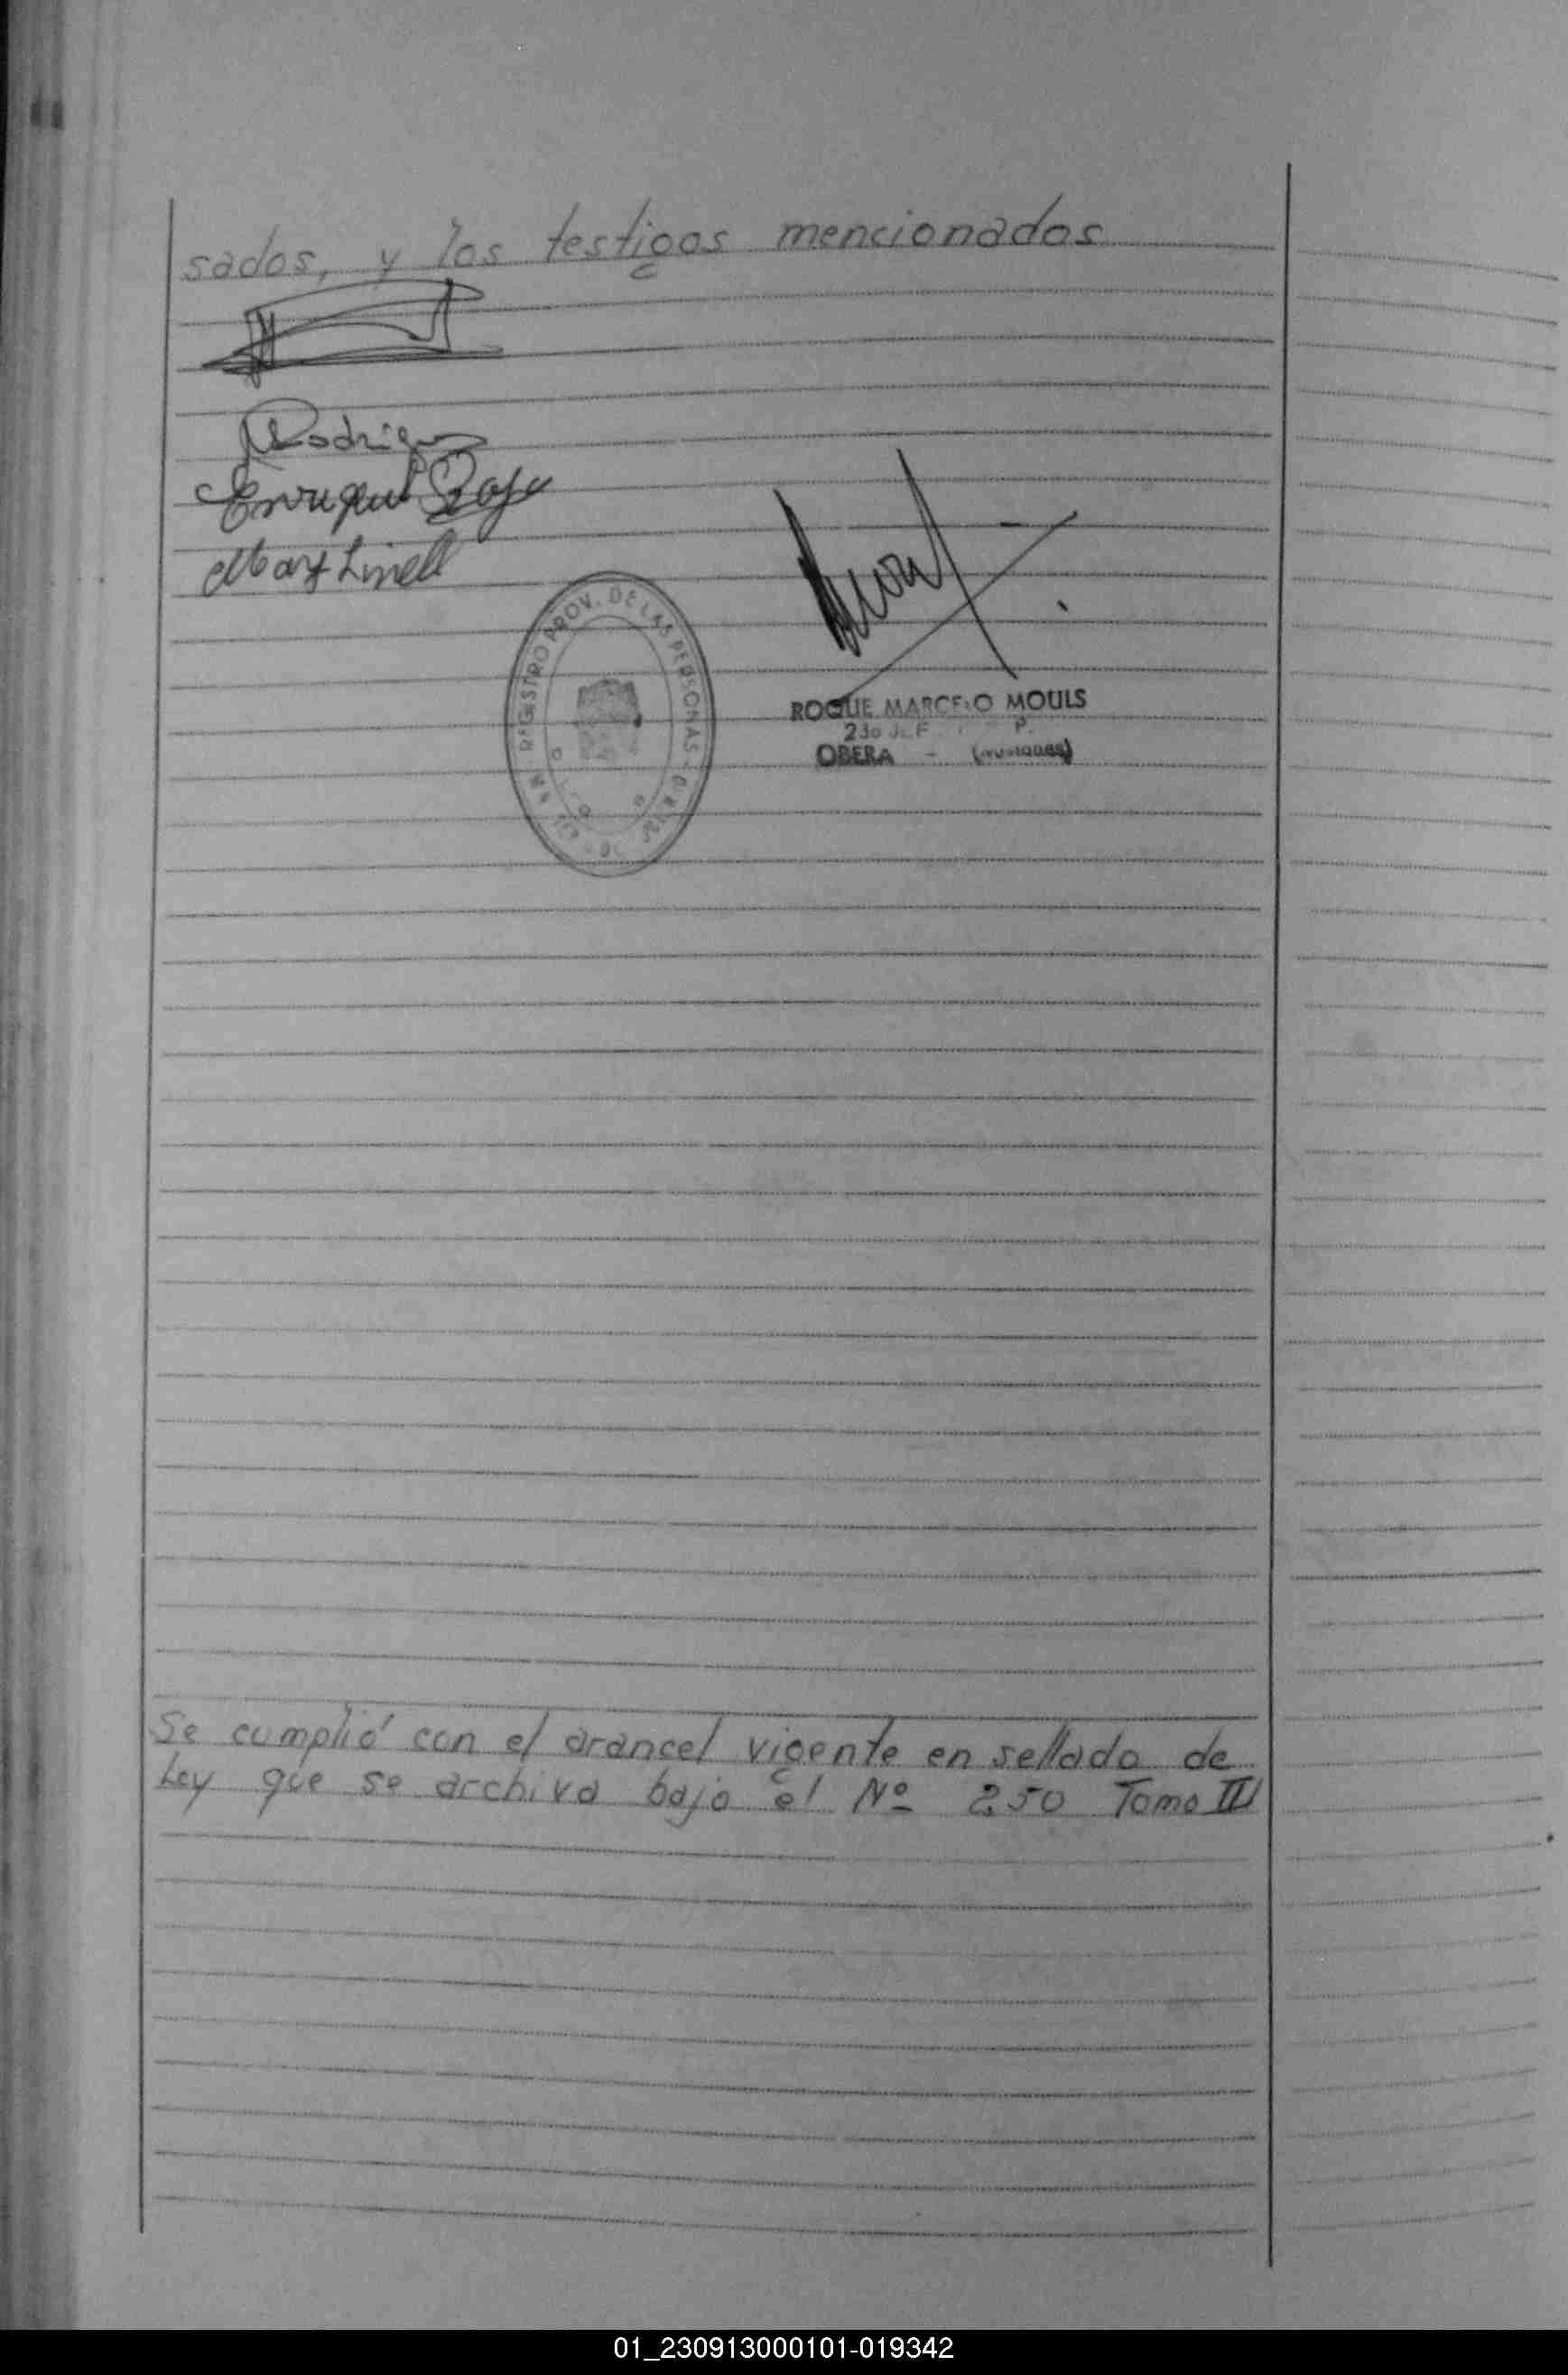 sados, y los testigos mencionados
Rodriguez
Enrique Rojo
REGISTRO PROV. DE LAS PERSONAS
ROQUE MARCELO MOULS
2do
OBERA - (Misiones)
Se cumplió con el arancel vigente en sellado de
Ley que se archiva bajo el Nº 250 Tomo III
01_230913000101-019342